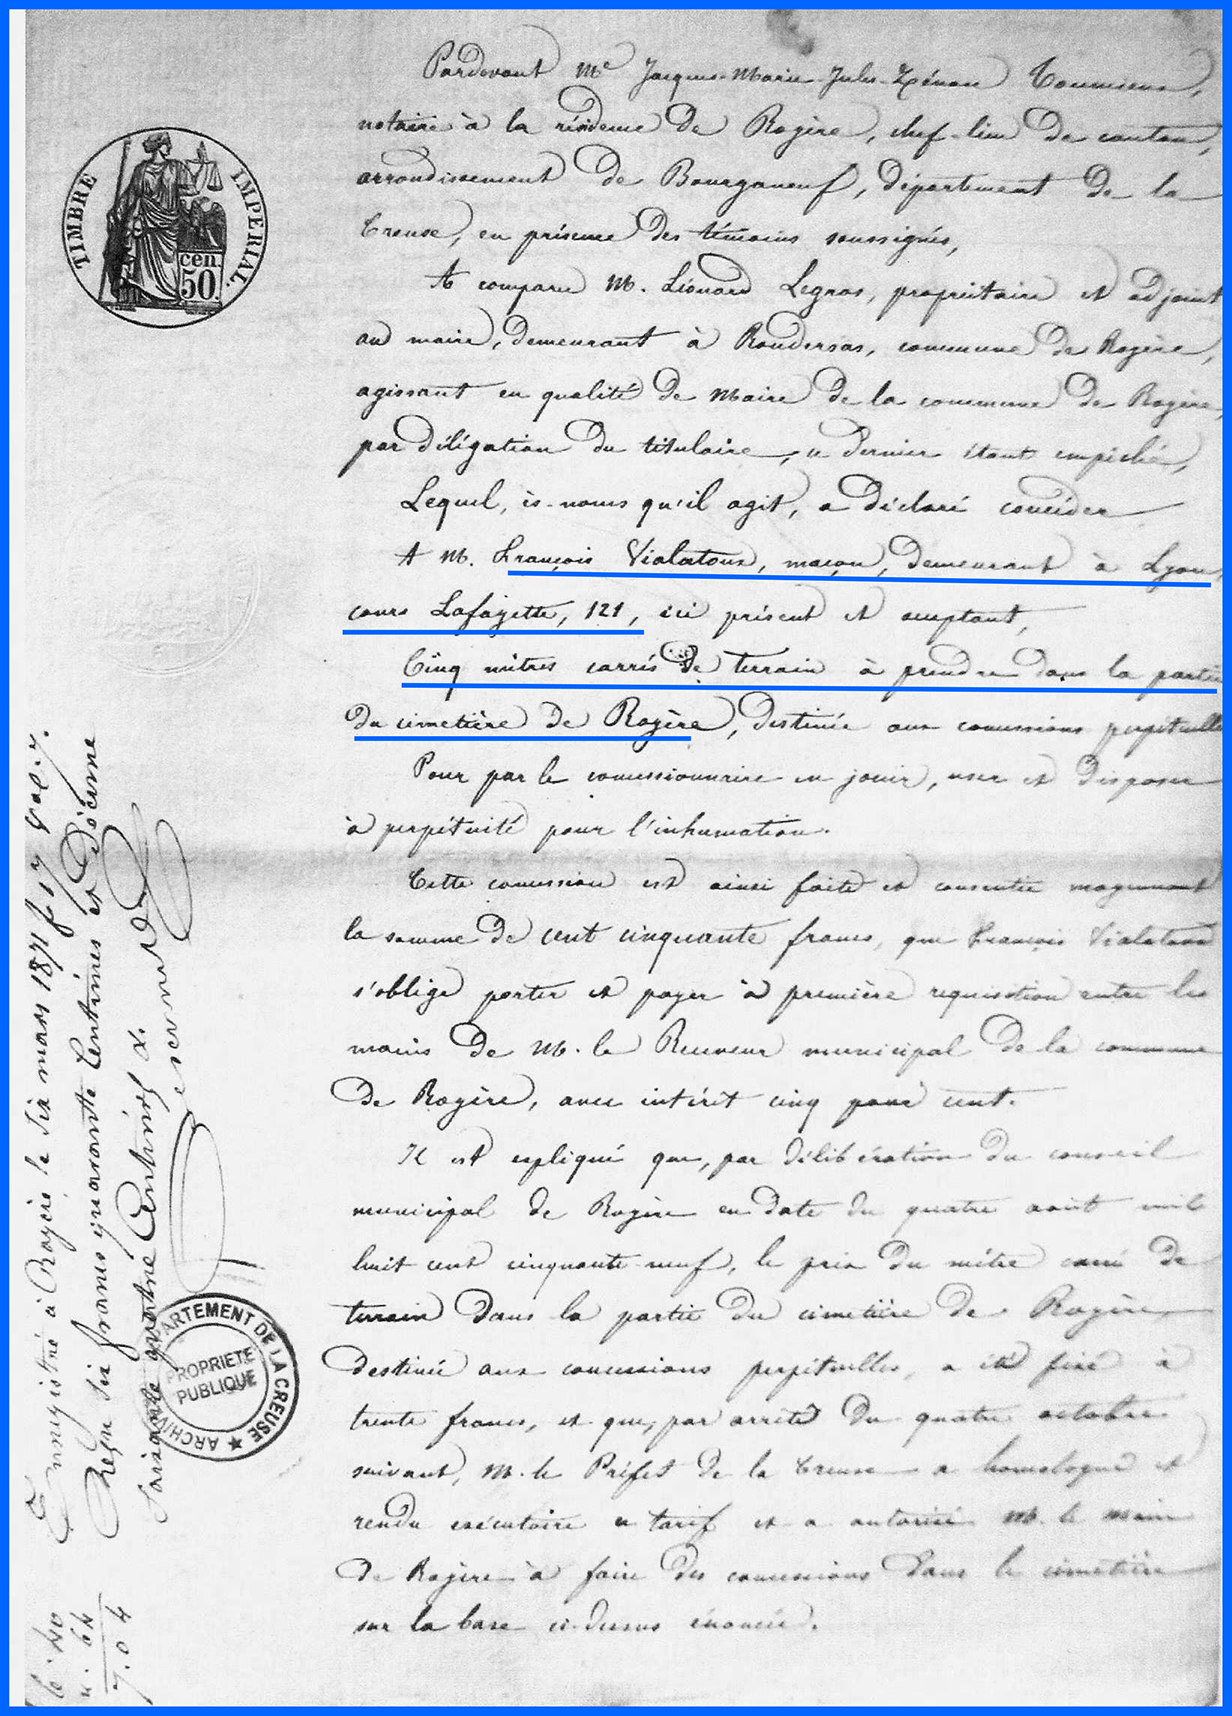 Pardevant Me Jacques-Marie-Jules-Zénon
notaire à la résidence de Royère, chef-lieu de canton,
arrondissement de Bourganeuf, département de la
Creuse, en présence des témoins soussignés,
A comparu M. Léonard Legros, propriétaire et adjoint
au maire, demeurant à Roudersas, commune de Royère,
agissant en qualité de Maire de la commune de Royère,
par délégation du titulaire, ce dernier étant empêché,
Lequel, ès-noms qu'il agit, a déclaré concéder
A M. François Vialatoux, maçon, demeurant à Lyon,
cours Lafayette, 121, ici présent et acceptant,
Cinq mètres carrés de terrain à prendre dans la partie
du cimetière de Royère, destinée aux concessions perpétuelles
Pour par le concessionnaire en jouir, user et disposer
à perpétuité pour l'inhumation.
Cette concession est ainsi faite et consentie moyennant
la somme de cent cinquante francs, que François Vialatoux
s'oblige porter et payer à première réquisition entre les
mains de M. le Receveur municipal de la commune
de Royère, avec intérêt cinq pour cent.
Il est expliqué que, par délibération du conseil
municipal de Royère en date du quatre août mil
huit cent cinquante-neuf, le prix du mètre carré de
terrain dans la partie du cimetière de Royère
destinée aux concessions perpétuelles, a été fixé à
trente francs, et que, par arrêté du quatre octobre
suivant, M. le Préfet de la Creuse a homologué et
rendu exécutoire ce tarif et a autorisé M. le maire
de Royère à faire des concessions dans le cimetière
sur la base ci-dessus énoncée.
TIMBRE IMPERIAL.
cen.
50.
Enregistré à Royère le six mars 1871 fo 17 Vo C. 7.
Reçu six francs quarante Centimes et Décime
soixante quatre Centimes
ARCHIVES DEPARTEMENT DE LA CREUSE
PROPRIETE
PUBLIQUE
6.40
64
7.04